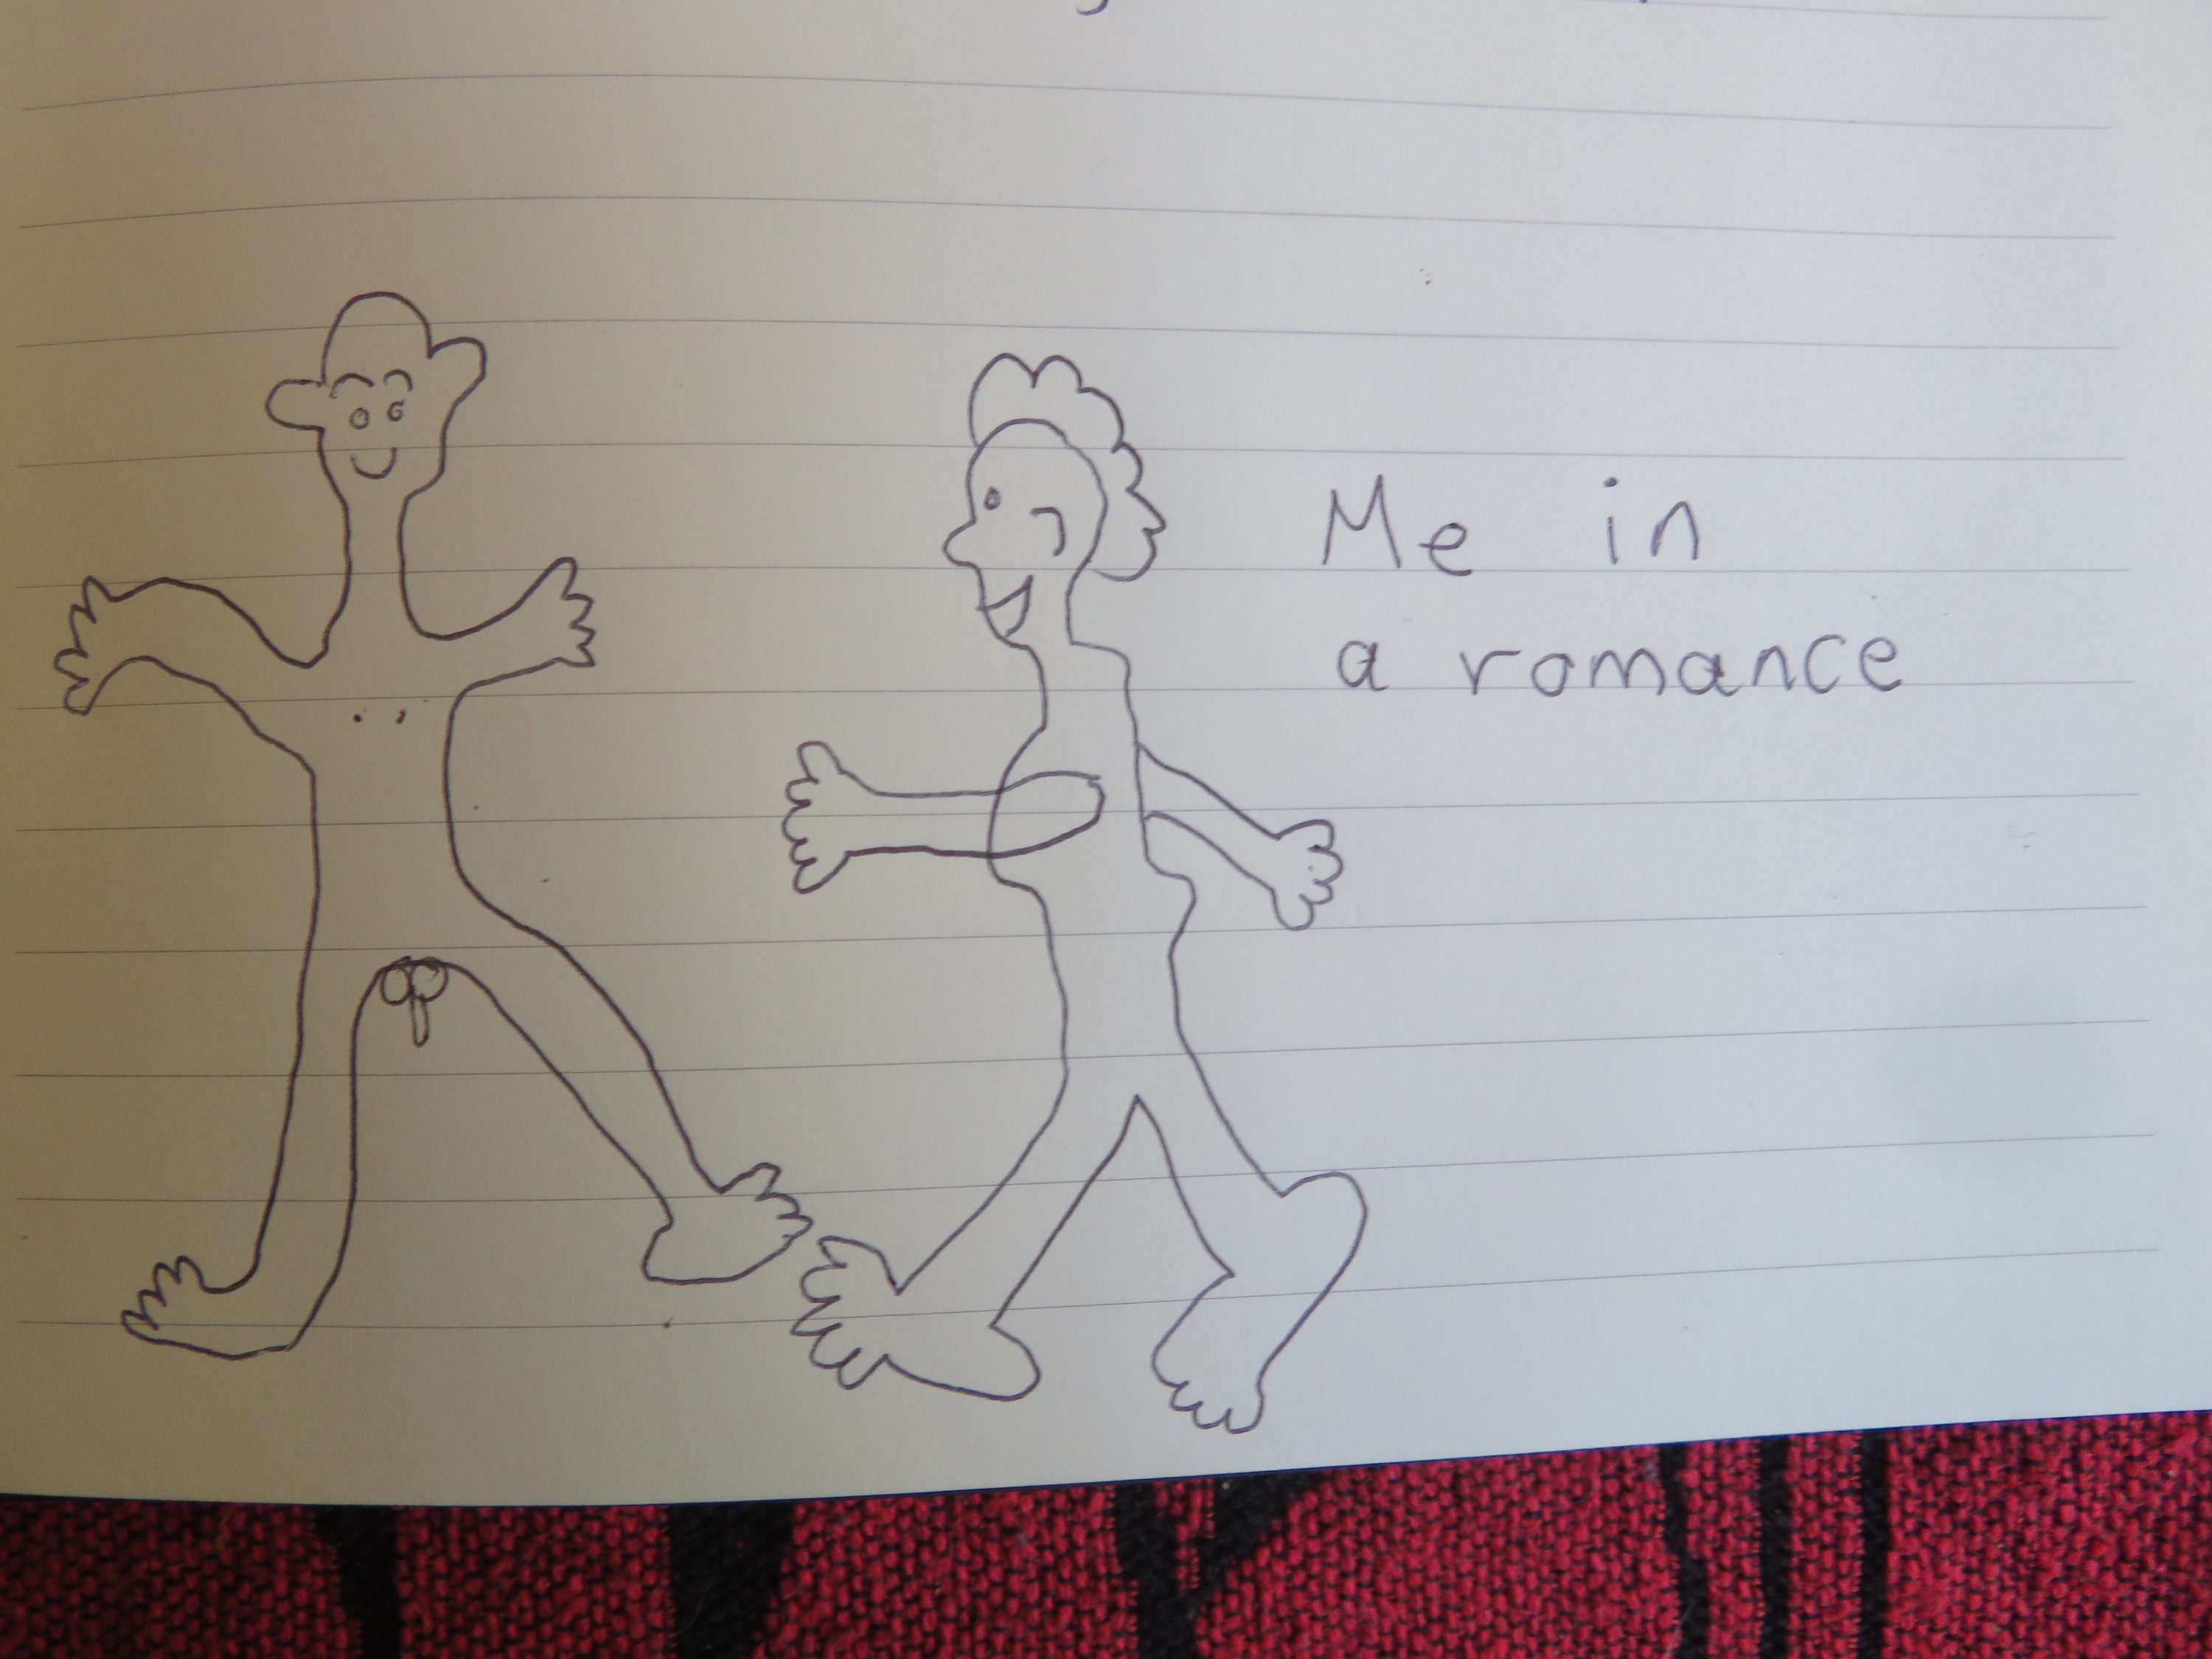 Me in
a romance